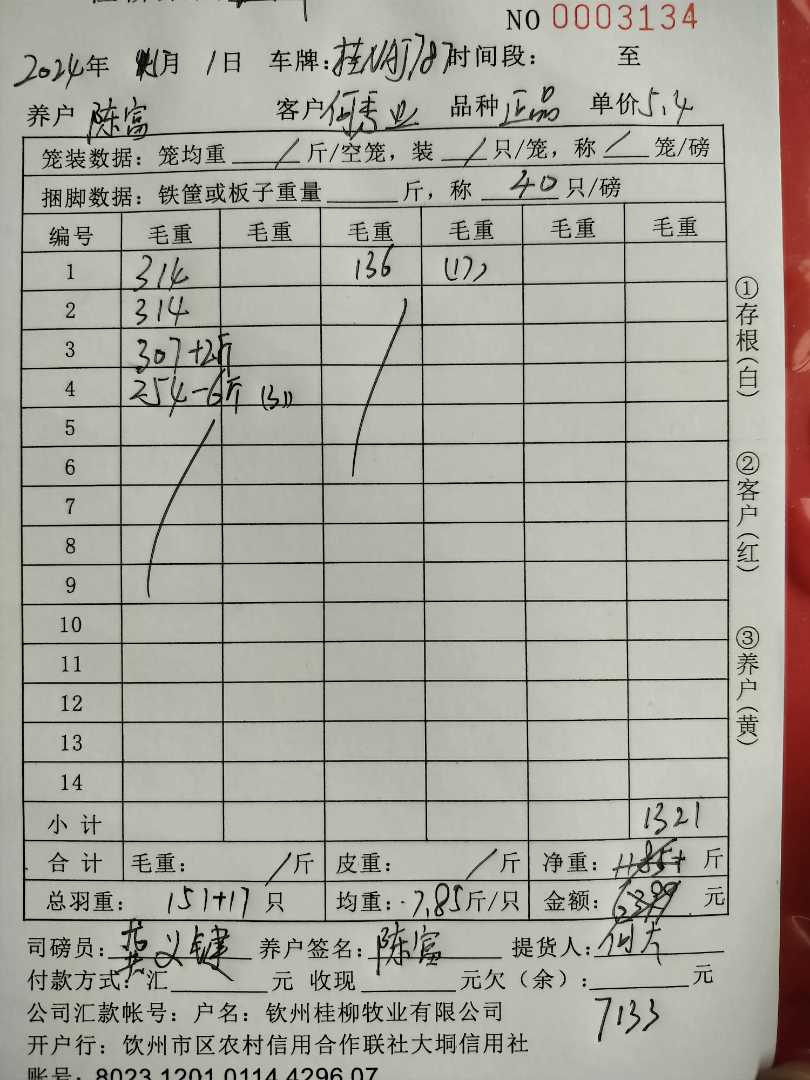 NO 0003134
2024年 5月 1日 车牌:桂NAJ787时间段: 至
养户 陈富 客户 何秀业 品种 正品 单价5.4
笼装数据: 笼均重 / 斤/空笼, 装 / 只/笼, 称 / 笼/磅
捆脚数据: 铁筐或板子重量 斤, 称 40 只/磅
编号 毛重 毛重 毛重 毛重 毛重 毛重
1 314 136 (17)
2 314
3 307+2斤
4 254-6斤 (31)
5
6
7
8
9
10
11
12
13
14
小计 1321
合计 毛重: /斤 皮重: /斤 净重: 斤
总羽重: 151+17 只 均重: 7.85斤/只 金额: 6399 元
司磅员: 义键 养户签名: 陈富 提货人: 何
付款方式: 汇 元 收现 元欠(余): 元
7133
公司汇款帐号: 户名: 钦州桂柳牧业有限公司
开户行: 钦州市区农村信用合作联社大垌信用社
账号: 8023 1201 0114 4296 07
①存根(白)
②客户(红)
③养户(黄)